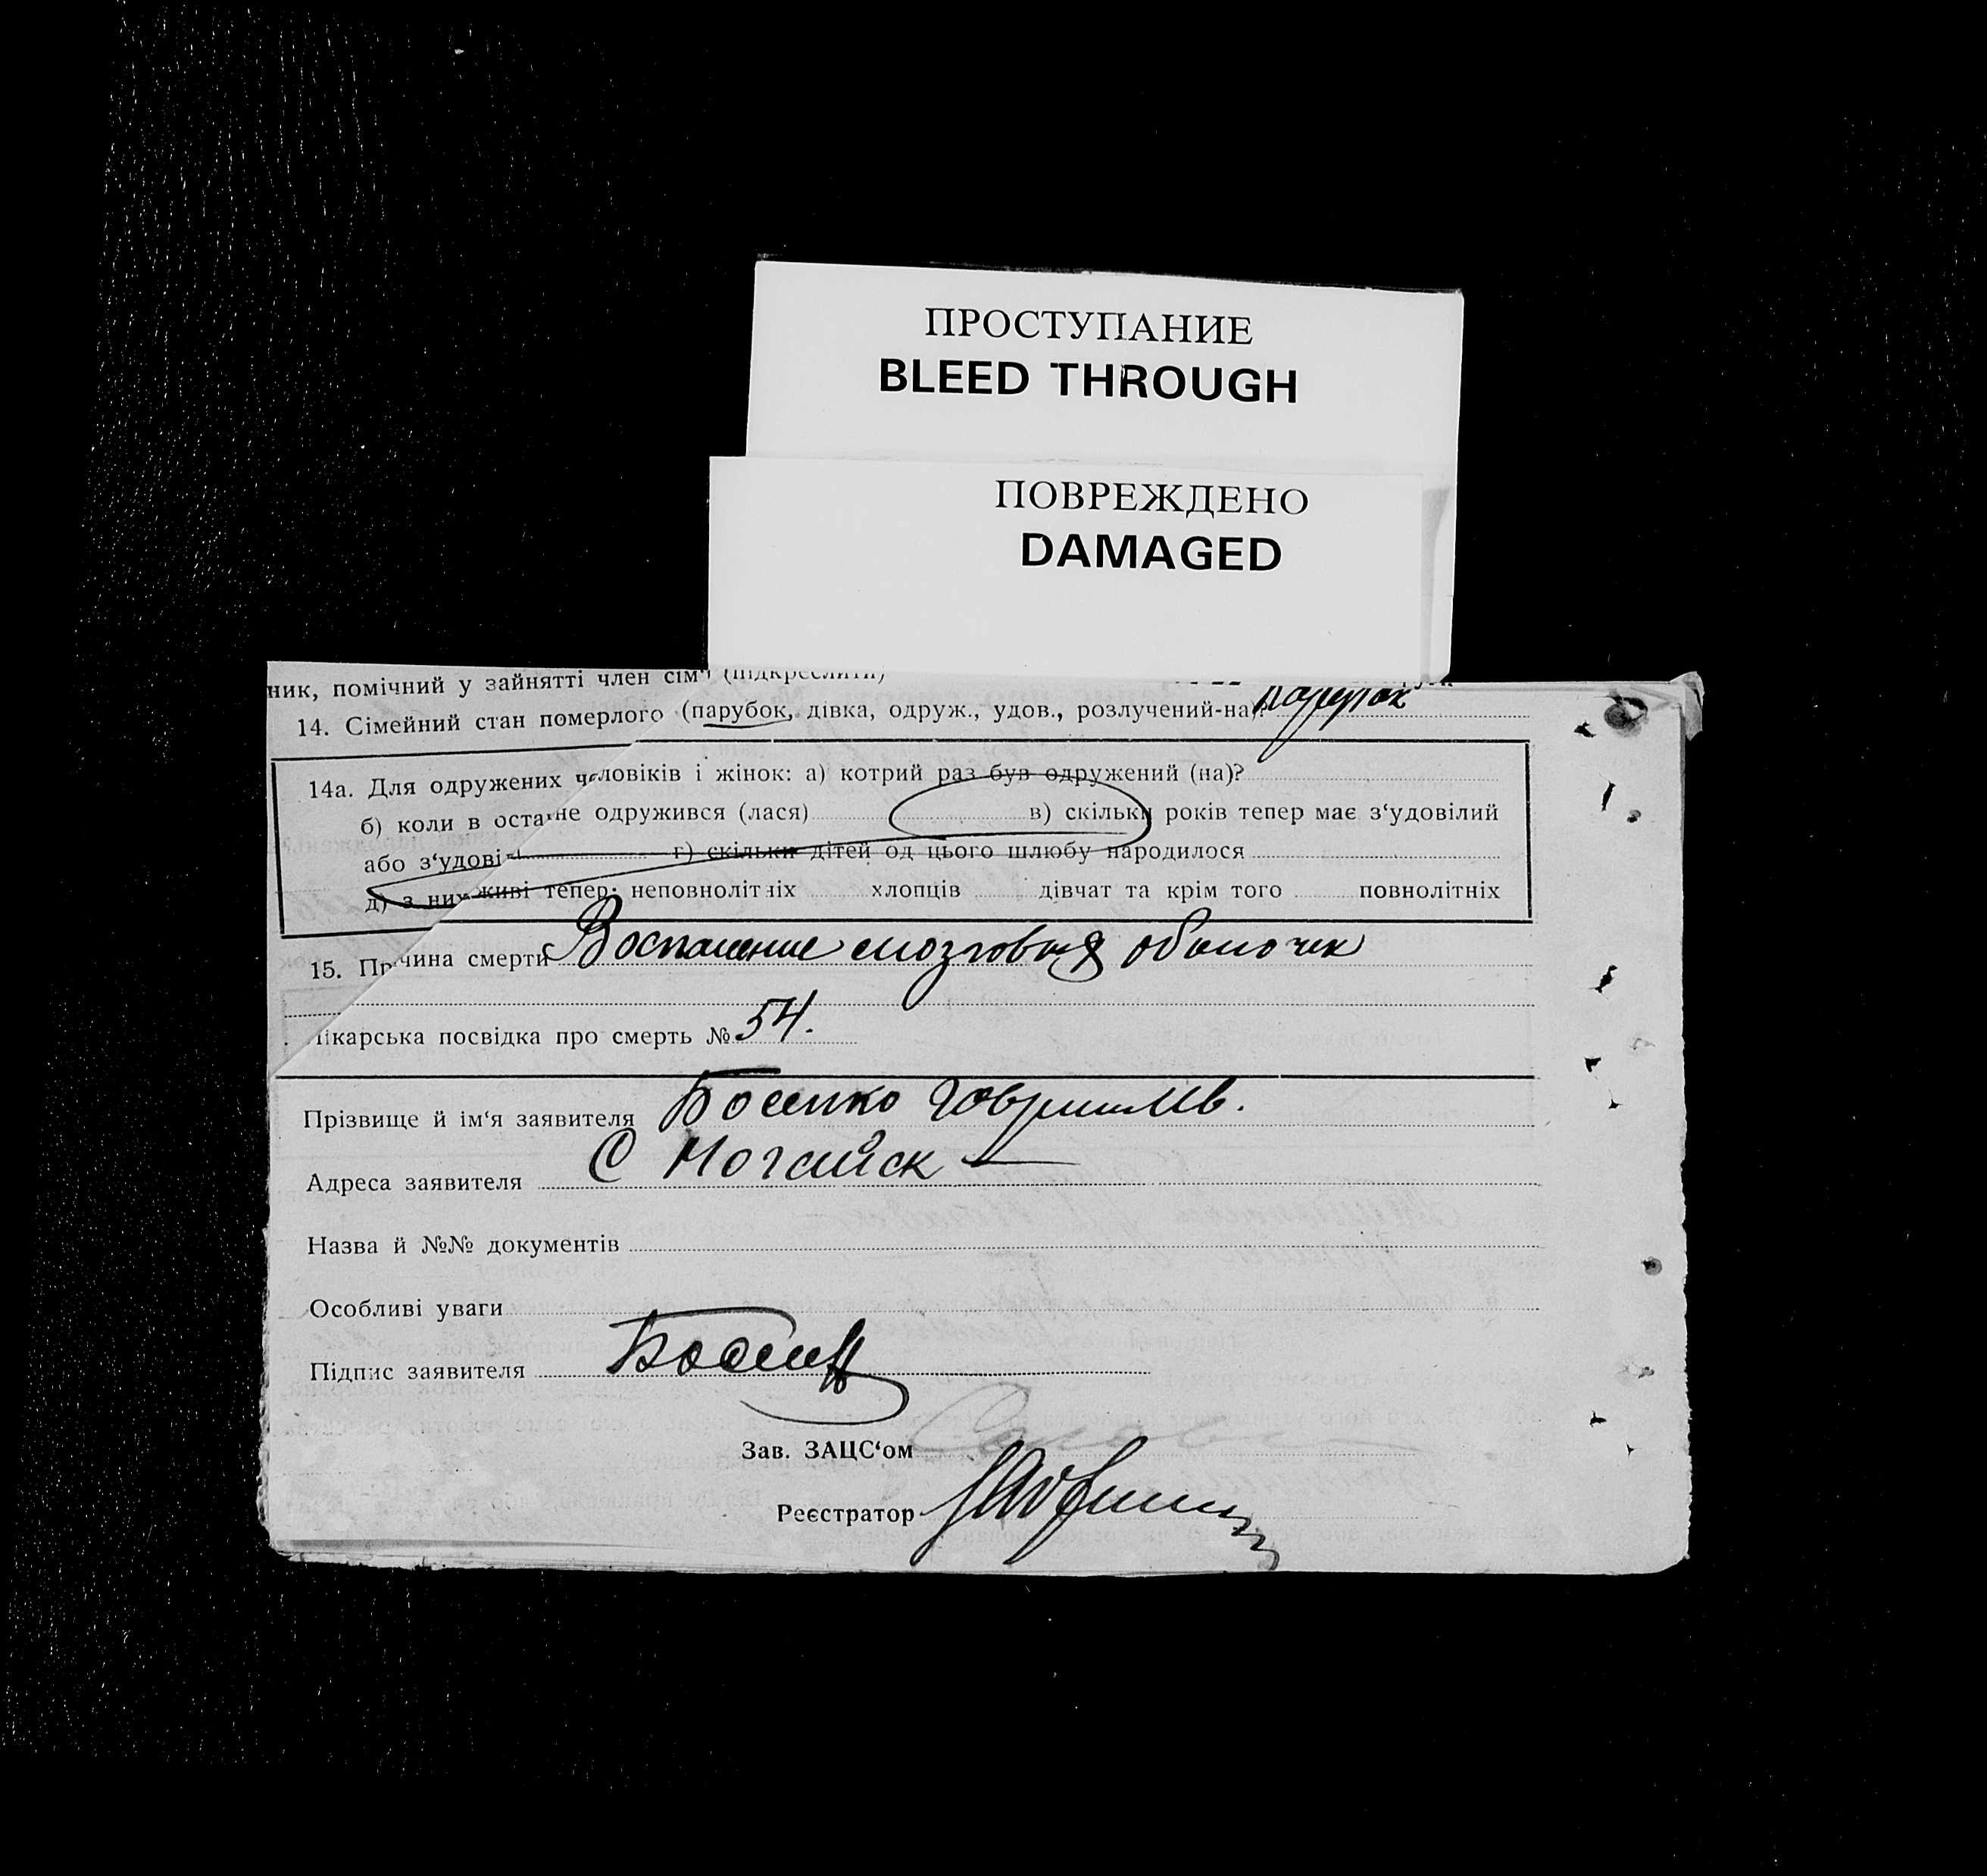 ПРОСТУПАНИЕ
BLEED THROUGH
ПОВРЕЖДЕНО
DAMAGED
ник, помічний у зайнятті член сім'ї (підкреслити)
14. Сімейний стан померлого (парубок, дівка, одруж., удов., розлучений-на)? парубок
14а. Для одружених чоловіків і жінок: а) котрий раз був одружений (на)?
б) коли в останнє одружився (лася) в) скільки років тепер має з'удовілий
або з'удові г) скільки дітей од цього шлюбу народилося
д) з них живі тепер: неповнолітніх хлопців дівчат та крім того повнолітніх
15. Причина смерти Воспаление мозговых оболочек
лікарська посвідка про смерть № 54.
Прізвище й ім'я заявителя Босенко
Адреса заявителя С Ногайск
Назва й №№ документів
Особливі уваги
Підпис заявителя
Зав. ЗАЦС'ом
Реєстратор